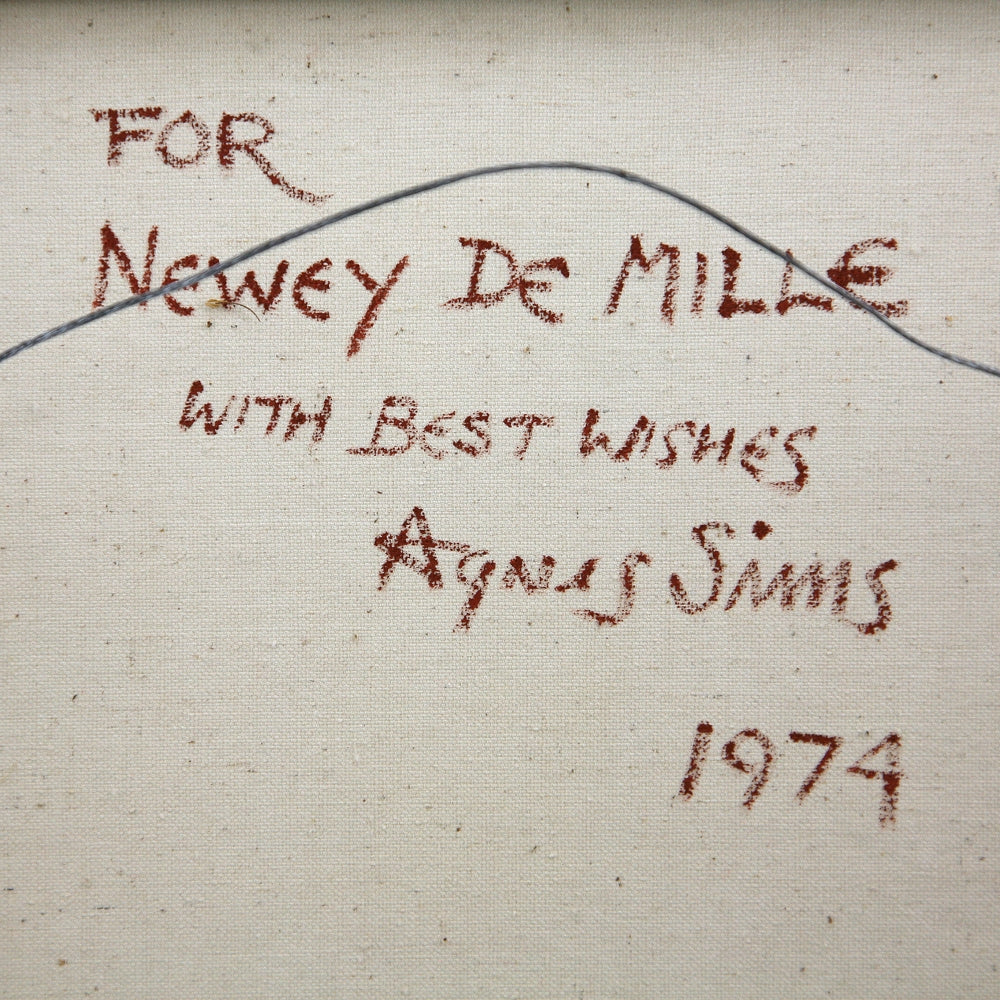 FOR
NEWEY DE MILLE
WITH BEST WISHES
Agnes Sims
1974